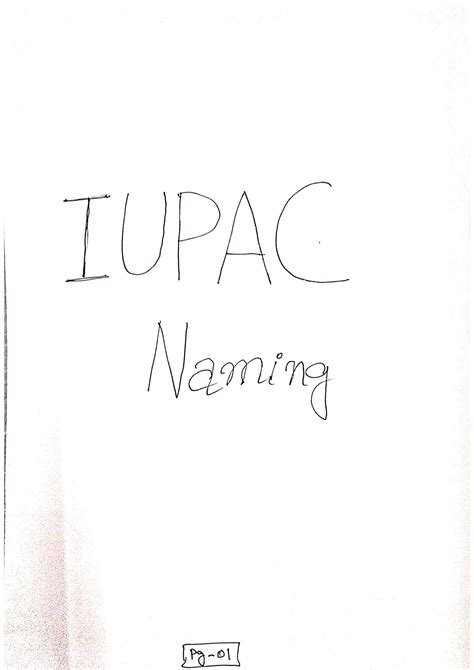 IUPAC
Naming
Pg-01